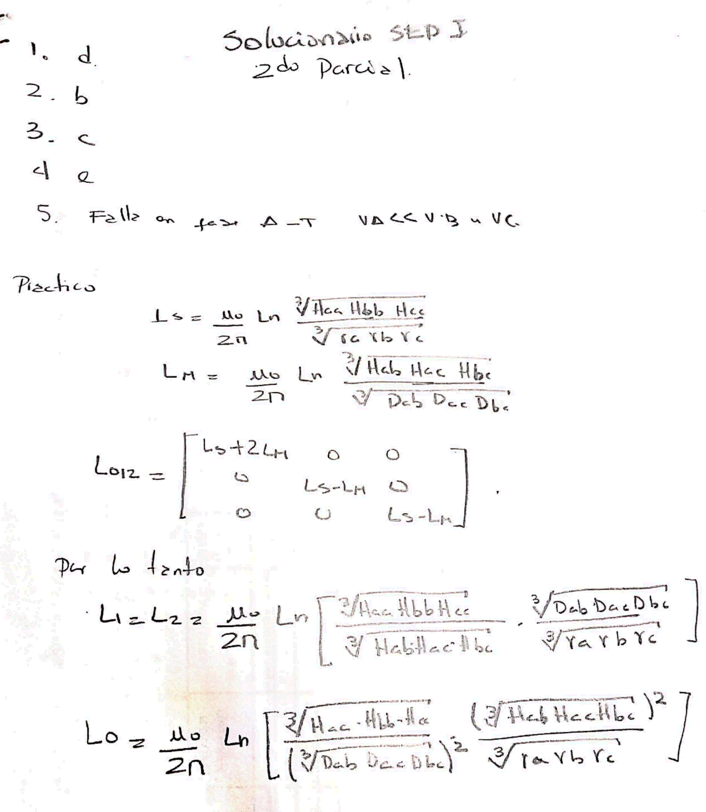 Solucionario SEP I
2do Parcial.
1. d.
2. b
3. c
4 e
5. Falla en fase A-T VA<<VB y VC
Practico
Ls = μo/2π Ln ∛(Haa Hbb Hcc) / ∛(ra rb rc)
LM = μo/2π Ln ∛(Hab Hac Hbc) / ∛(Dab Dac Dbc)
L012 = [ Ls+2LM 0 0
0 Ls-LM 0
0 0 Ls-LM ] .
Por lo tanto
L1 = L2 = μo/2π Ln [ ∛(Haa Hbb Hcc) / ∛(Hab·Hac·Hbc) · ∛(Dab Dac Dbc) / ∛(ra rb rc) ]
Lo = μo/2π Ln [ ∛(Haa·Hbb·Hcc) / (∛(Dab Dac Dbc))² (∛(Hab Hac Hbc))² / ∛(ra rb rc) ]